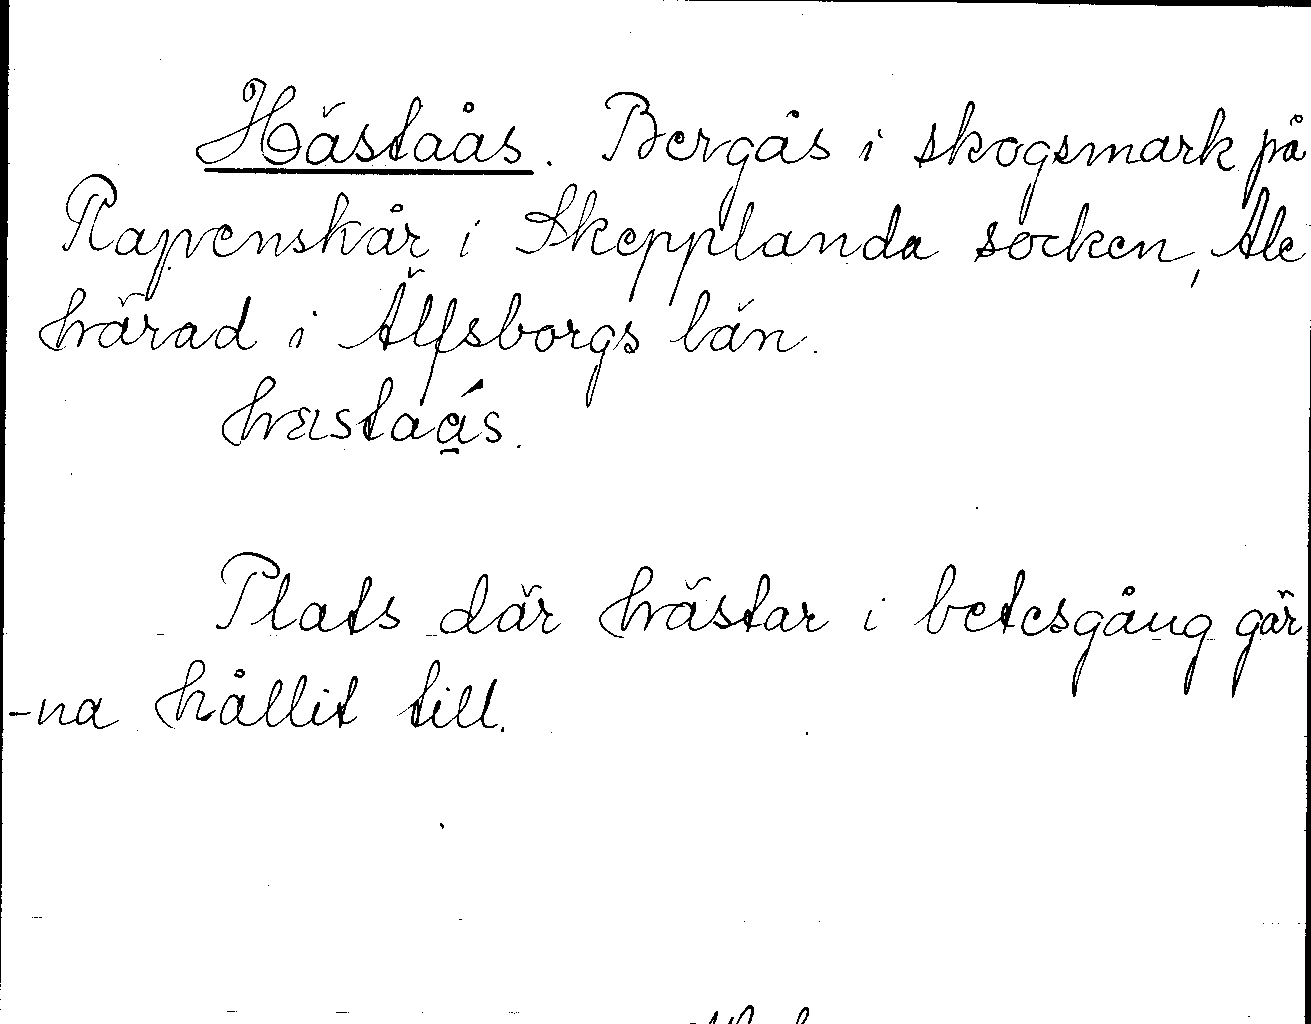 Hästaås. Bergås i skogsmark på
Rapenskår i Skepplanda socken, Ale
härad i Älfsborgs län.
hästaås.
Plats där hästar i betesgång gär
-na hållit till.